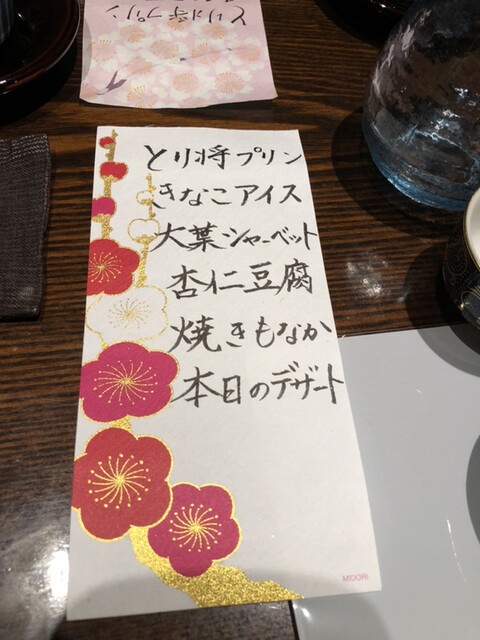 とり将プリン
とり将プリン
きなこアイス
大葉シャーベット
杏仁豆腐
焼きもなか
本日のデザート
MIDORI